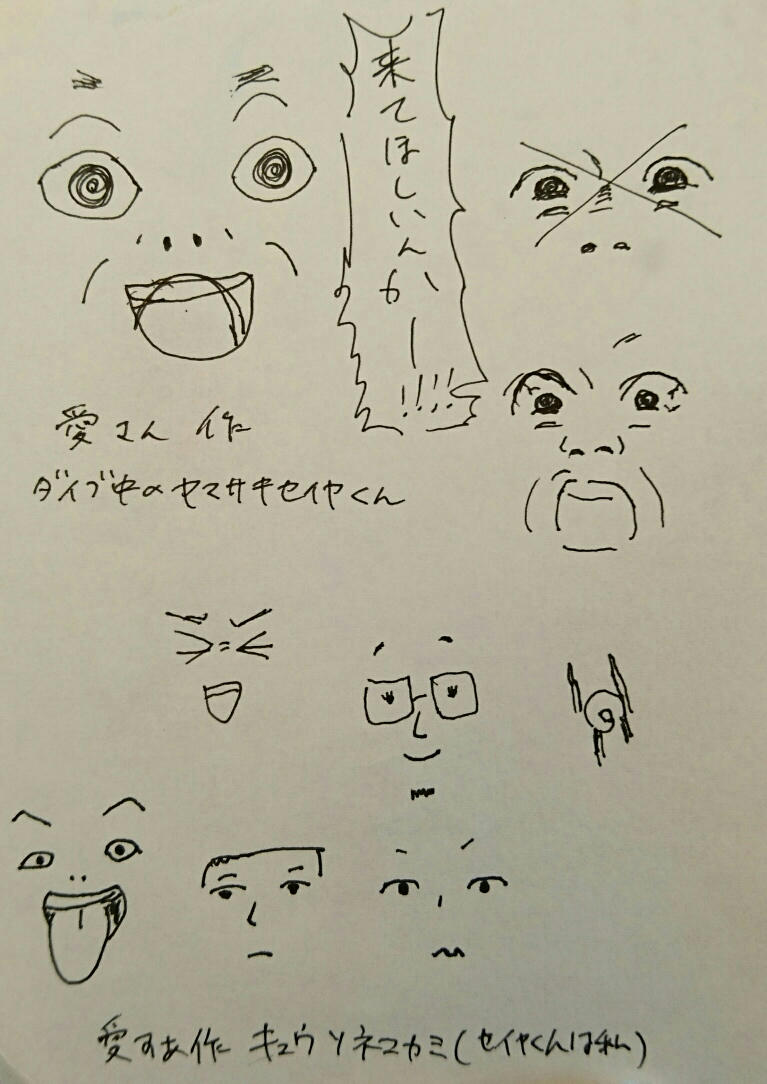 来てほしいんかー!!!!
愛さん 作
ダイブ中のヤマサキセイヤくん
愛すあ作 キュウソネコカミ(セイヤくんは私)